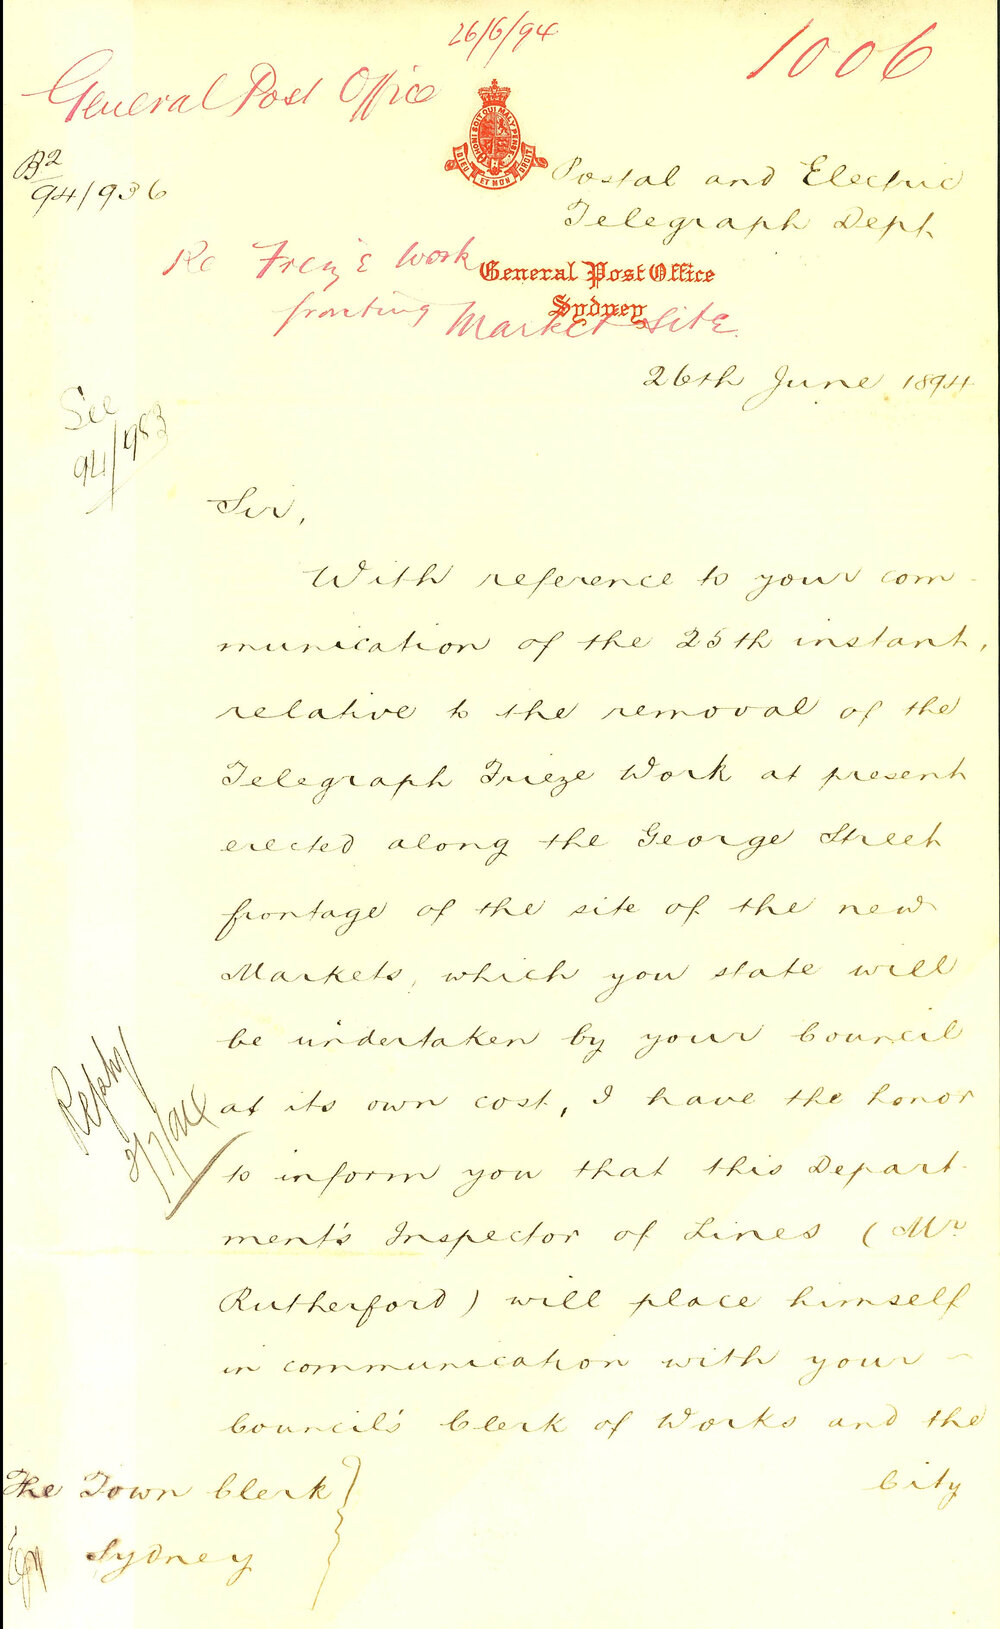 26/6/94
1006
General Post Office
HONI SOIT QUI MAL Y PENSE
DIEU ET MON DROIT
B2
94/936
Postal and Electric
Telegraph Dept.
Re Freize Work
fronting Market Site
General Post Office
Sydney
26th June 1894
See
94/983
Sir,
With reference to your com-
munication of the 25th instant,
relative to the removal of the
Telegraph Frieze Work at present
erected along the George Street
frontage of the site of the new
Markets, which you state will
be undertaken by your Council
at its own cost, I have the honor
Reply
2/7/94
to inform you that this Depart-
ment's Inspector of Lines (Mr.
Rutherford) will place himself
in communication with your
Council's Clerk of Works and the
City
The Town Clerk
Sydney